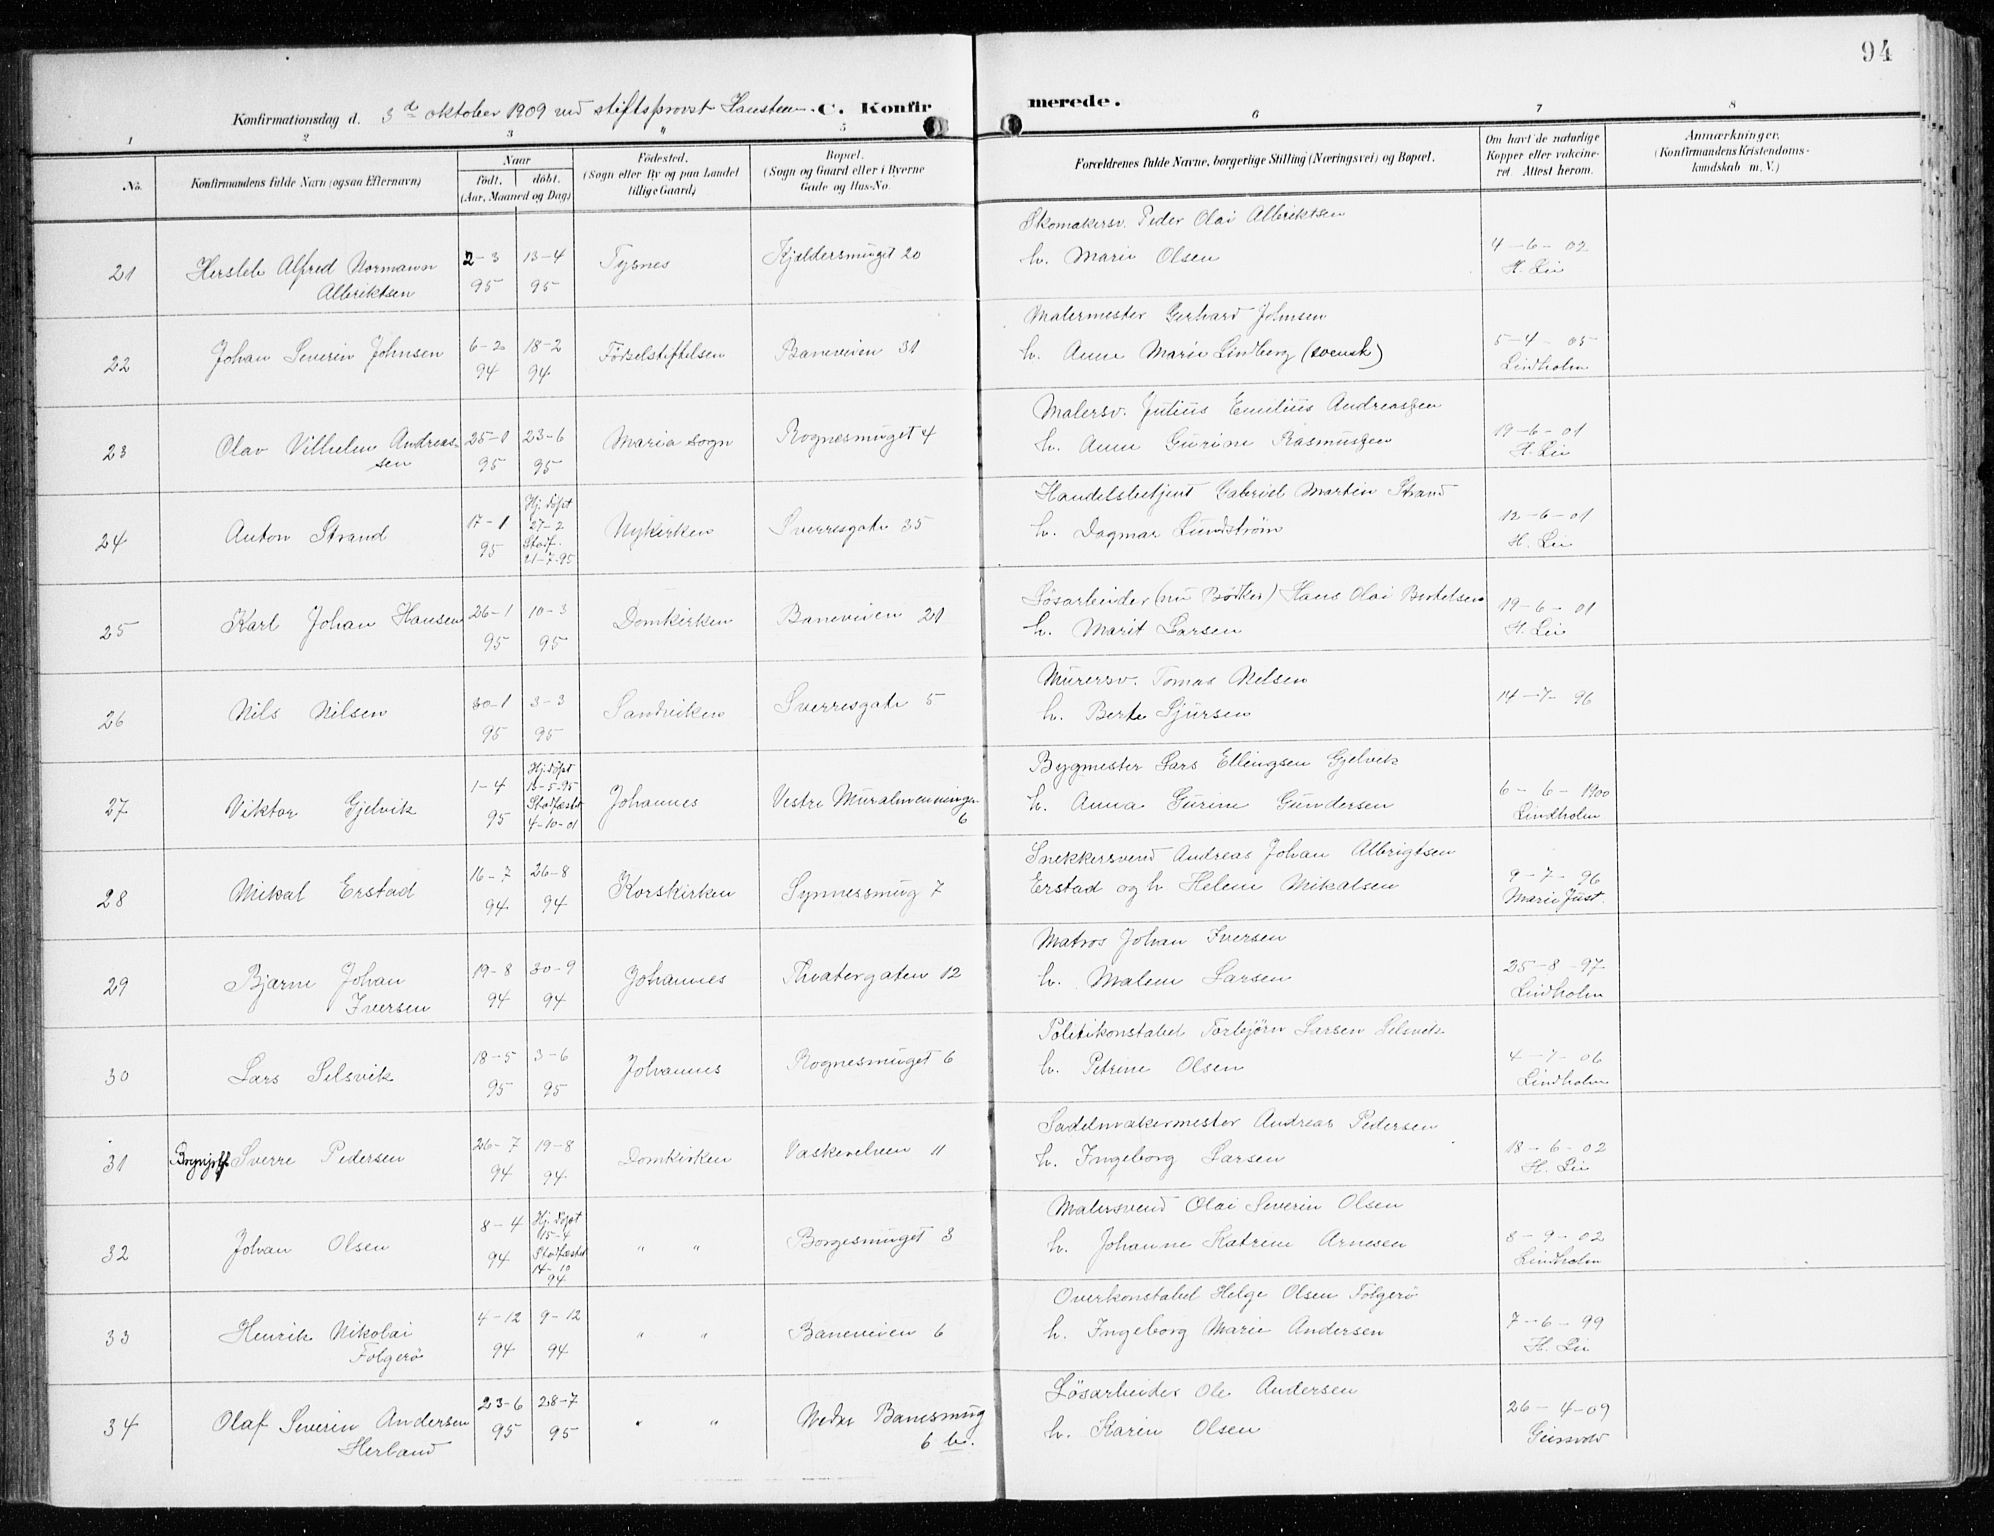 94
Konfirmationsdag d. 3de oktober 1909 ved stiftsprovst Hansteen. C. Konfirmerede.
1 2 3 4 5 6 7 8
No. Konfirmandens fulde Navn (ogsaa Efternavn) Naar født, døbt. (Aar, Maaned og Dag) Fødested. (Sogn eller By og paa Landet tillige Gaard) Bopæl. (Sogn og Gaard eller i Byerne Gade og Hus-No. Forældrenes fulde Navne, borgerlige Stilling (Næringsvei) og Bopæl. Om havt de naturlige Kopper eller vaccineret. Attest herom. Anmærkninger. (Konfirmandens Kristendomskundskab m. V.)
21 Hersleb Alfred Normann Albriktsen 2-3 95 13-4 95 Tysnes Kjeldersmuget 20 Skomakersv. Peder Olai Albriktsen h. Marie Olsen 4-6-02 H. Lie
22 Johan Severin Johnsen 6-2 94 18-2 94 Fødselstiftelsen Baneveien 31 Malermester Gerhard Johnsen h. Anne Marie Lindberg (svensk) 5-4-05 Lindholm
23 Olav Vilhelm Andreassen 25-1 95 23-6 95 Maria sogn Rognesmuget 4 Malersv. Julius Emilius Andreassen h. Anne Gurine Rasmussen 19-6-01 H. Lie
24 Anton Strand 17-1 95 Hj. døpt 27-2 Stadf. 21-7-95 Nykirken Sverresgate 35 Handelsbetjent Gabriel Martin Strand h. Dagmar Lundstrøm 12-6-01 H. Lie
25 Karl Johan Hansen 26-1 95 10-3 95 Domkirken Baneveien 21 Løsarbeider (nu Bøtker) Hans Olai Bertelsen h. Marit Larsen 19-6-01 H. Lie
26 Nils Nilsen 30-1 95 3-3 95 Sandviken Sverresgate 5 Murersv. Tomas Nilsen h. Berte Sjursen 14-7-96
27 Viktor Gjelvik 1-4 95 Hj. døpt 13-5-95 Stadfæstet 4-10-01 Johannes Vestre Muralmenningen 6 Bygmester Lars Ellingsen Gjelvik h. Anna Gurine Gundersen 6-6-1900 Lindholm
28 Mikal Erstad 16-7 94 26-8 94 Korskirken Synnesmug 7 Snekkersvend Andreas Johan Albrigtsen Erstad og h Helene Mikalsen 9-7-96 Marie Just.
29 Bjarne Johan Iversen 19-8 94 30-9 94 Johannes Theatergaten 12 Matros Johan Iversen h. Malene Larsen 25-8-97 Lindholm
30 Lars Selsvik 18-5 95 3-6 95 Johannes Rognesmuget 6 Politikonstabel Torbjørn Larsen Selsvik h. Petrine Olsen 4-7-06 Lindholm
31 Sverre Pedersen 26-7 94 19-8 94 Domkirken Vaskerelven 11 Sadelmakermester Andreas Pedersen h. Ingeborg Larsen 18-6-02 H. Lie
32 Johan Olsen 8-4 94 Hj. døpt 15-4 Stadfæstet 14-10 94 " " Borgesmuget 3 Malersvend Olai Severin Olsen h. Johanne Katrine Arnesen 8-9-02 Lindholm
33 Henrik Nikolai Folgerø 4-12 94 9-12 94 " " Baneveien 6 Overkonstabel Helge Olsen Folgerø h. Ingeborg Marie Andersen 7-6-99 H. Lie
34 Olaf Severin Andersen Herland 23-6 95 28-7 95 " " Nedre Banesmug 6 b. Løsarbeider Ole Andersen h. Karin Olsen 26-4-09